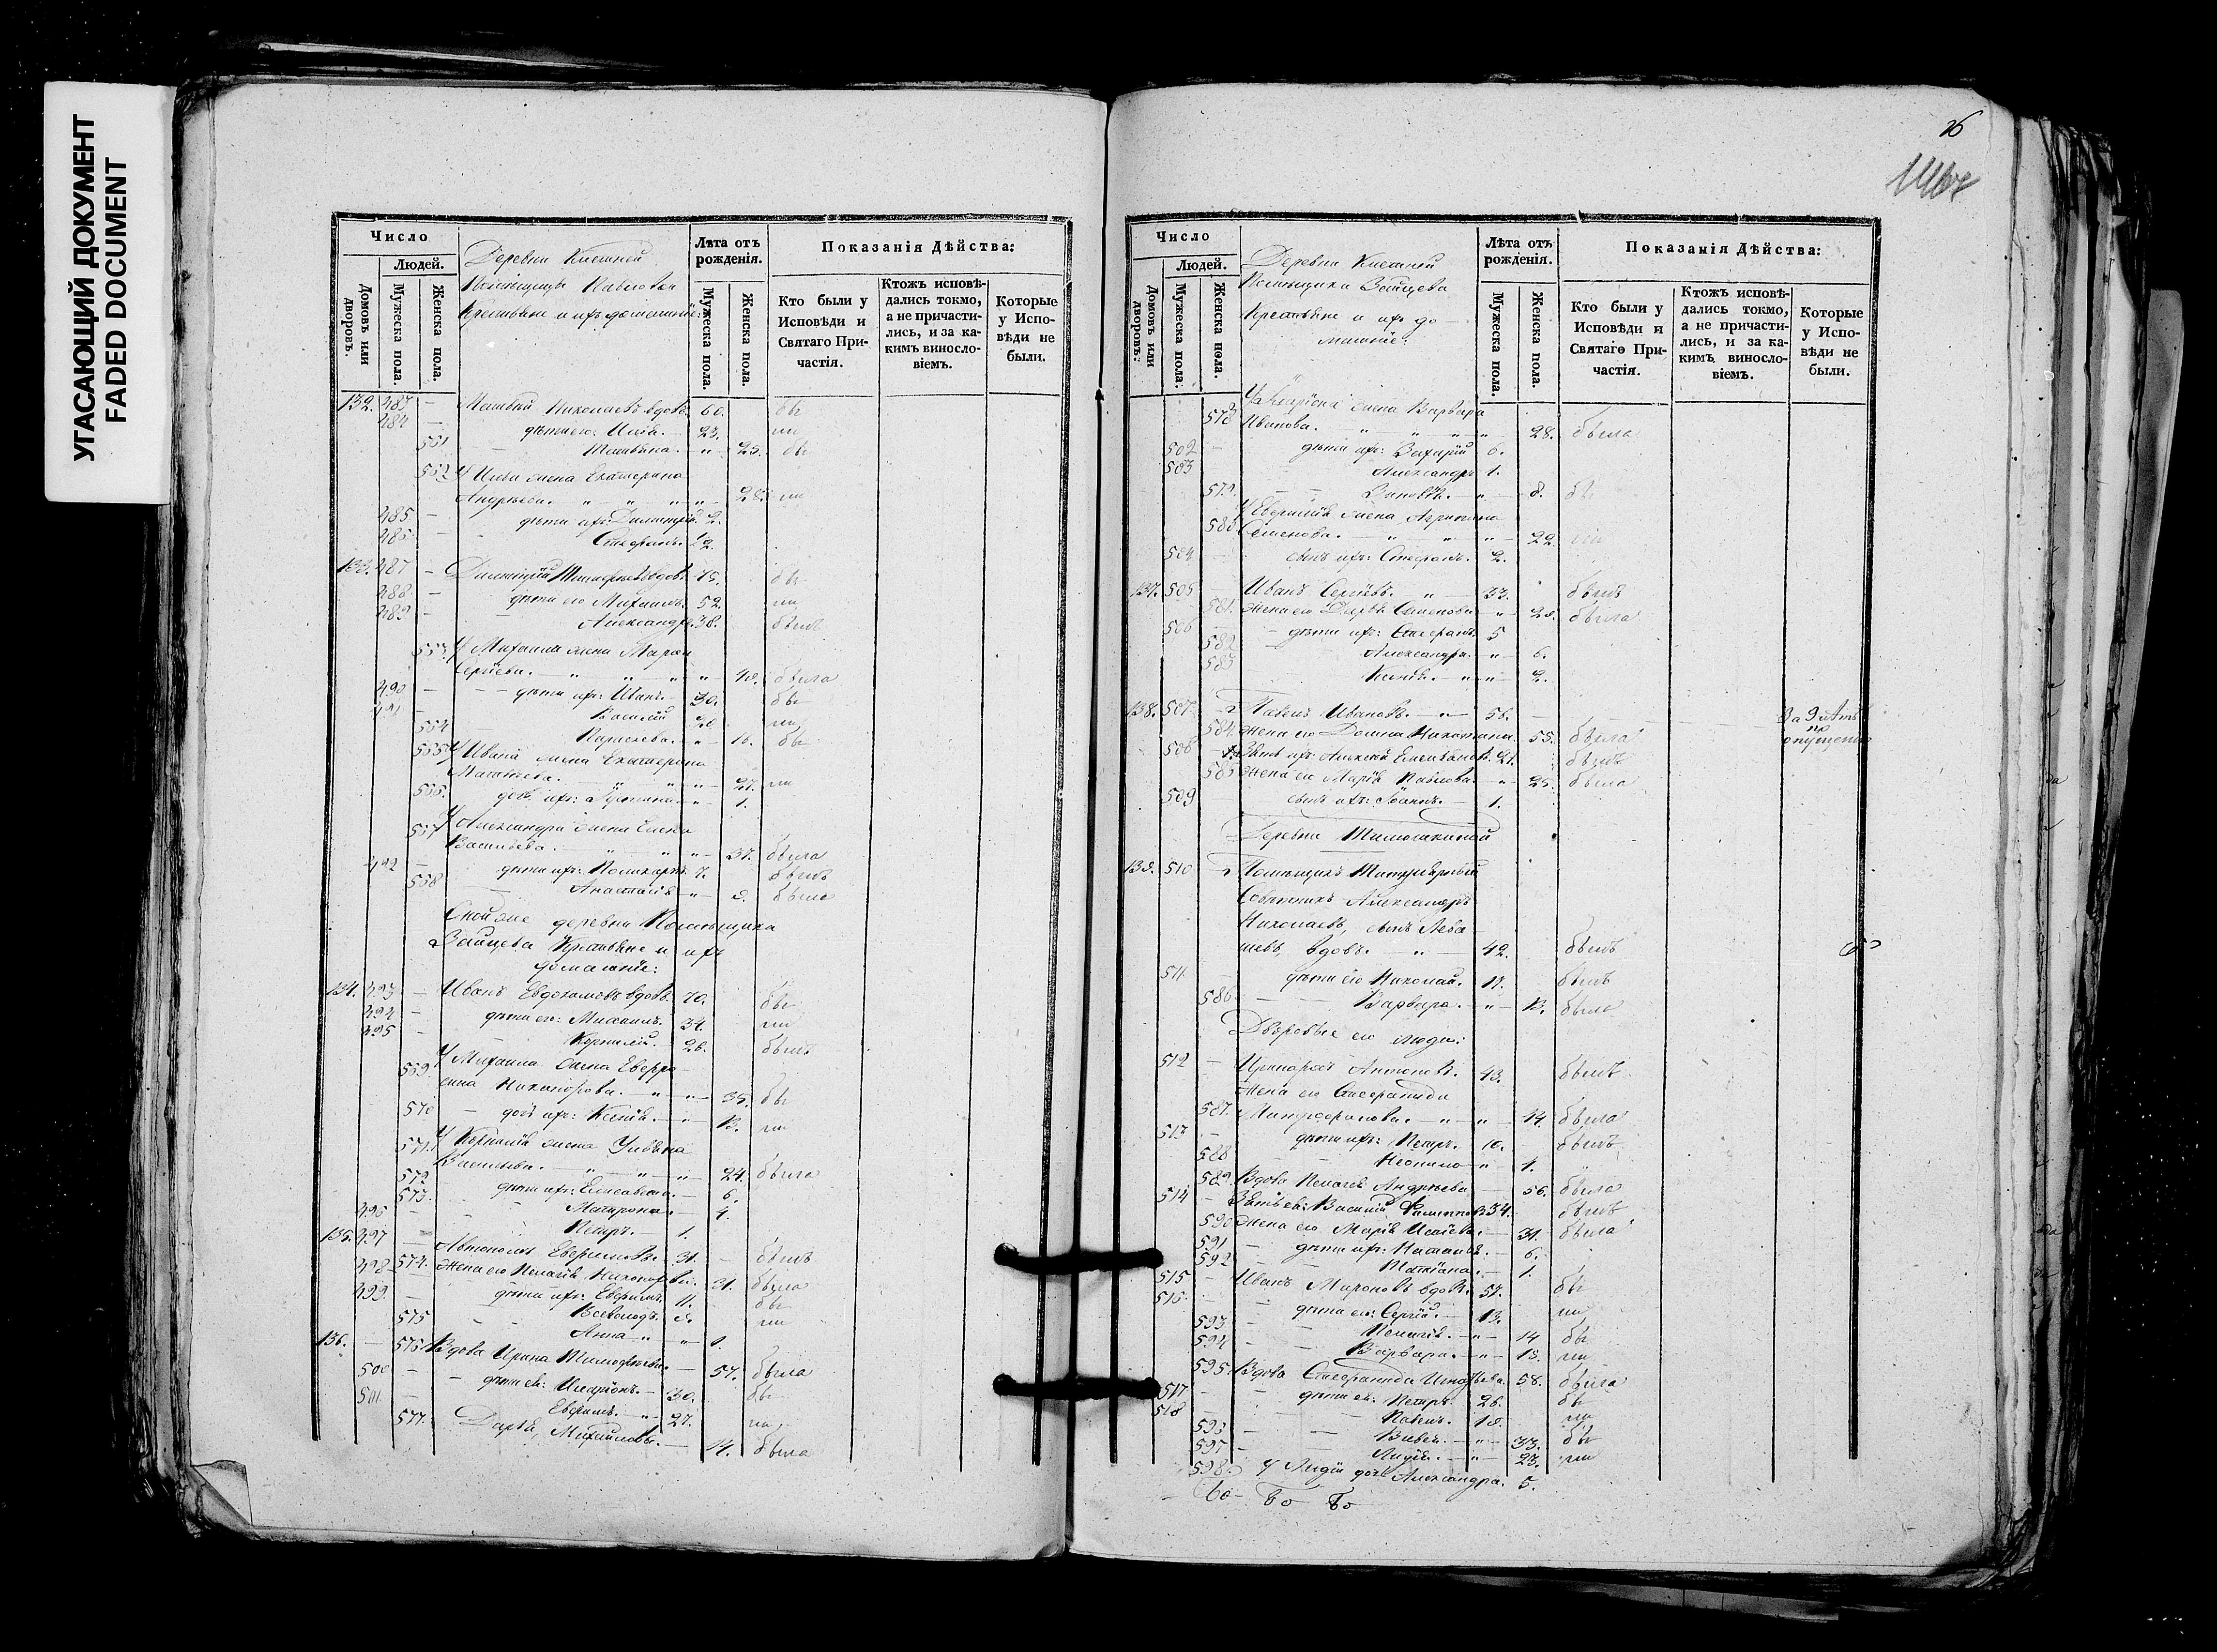 УГАСАЮЩИЙ ДОКУМЕНТ
FADED DOCUMENT
Число
Людей.
Домовъ или дворовъ.
Мужеска пола.
Женска пола.
Деревни
Помѣщицы Павловой
Крестьяне и ихъ домашніе:
Лѣта отъ рожденія.
Мужеска пола.
Женска пола.
Показанія Дѣйства:
Кто были у Исповѣди и Святаго Причастія.
Ктожъ исповѣдались токмо, а не причастились, и за какимъ винословіемъ.
Которые у Исповѣди не были.
132. 483 — Николаевъ вдовъ. 60. бы
484 — дѣти его: Илія. 23. ли
561 " 25. бы
562 У Иліи жена Екатерина
Андреева. " " " " 28. ли
485 — дѣти ихъ: Димитрій 2.
486 — Стефанъ.
133. 487 — Димитрій вдовъ. 75. бы
488 — дѣти его Михаилъ. 52. ли
489 — Александръ. 38. былъ
563 У Михаила жена Марѳа
Сергіева. " " " " была
490 — дѣти ихъ: Иванъ. 30. бы
491 — Василій ли
564 Параскева. " 16. бы
565 У Ивана жена Екатерина
" " " 27. ли
566. дочь ихъ: " 1.
567 У Александра жена Елена
Васильева. " " " 37. была
492 — дѣти ихъ: Поликарпъ 7. былъ
568 Анастасія " была
Той же деревни Помѣщика
Зайцева Крестьяне и ихъ
домашніе:
134. 493 — Иванъ Евдокимовъ вдовъ. 70. бы
494 — дѣти его: Михаилъ. 34. ли
495 — Корнилій. 26. былъ
569 У Михаила жена Евфро
сина Никанорова. " " 35. бы
570 — дочь ихъ: Ксенія. " ли
571. У Корнилія жена Уліяна
Васильева. " " " 24. была
572 дѣти ихъ: Елисавета. — 6.
573. Матрона. — 4.
496 — Петръ. 1.
135. 497 — Автономъ Евфимовъ. 31. былъ
574. Жена его Пелагія Никонорова. 31. была
498 — дѣти ихъ: Евфимъ. 11. бы
499. — Всеволодъ. ли
575 Анна " "
136. — 576. Вдова Ирина Тимоѳеева. — 57. была
500 — дѣти ея: Иларіонъ. 30. бы
501 — Евфимъ. 27. ли
577. Дарья Михайлова. — 14. была
26
Число
Людей.
Домовъ или дворовъ.
Мужеска пола.
Женска пола.
Деревни
Помѣщика Зайцева
Крестьяне и ихъ до
машніе:
Лѣта отъ рожденія.
Мужеска пола.
Женска пола.
Показанія Дѣйства:
Кто были у Исповѣди и Святаго Причастія.
Ктожъ исповѣдались токмо, а не причастились, и за какимъ винословіемъ.
Которые у Исповѣди не были.
У Иларіона жена Варвара
578 Иванова. " " " " 28. была
502 — дѣти ихъ: Захарій 6.
503 Александръ 1.
579. — Зиновія. " 8. бы
У Евфимія жена Агрипина
580 Семенова. " " " " 22. ли
504 — сынъ ихъ: Стефанъ. 2.
137. 505 Иванъ Сергіевъ. " 33. былъ
581. Жена его Дарья Семенова " 28. была
506 — дѣти ихъ: Стефанъ. 5
582 Александра. " 6.
583 Ксенія. " " 2.
138. 507. — Павелъ Ивановъ. " 56. За 9 лѣтъ по опущенію
584. Жена его Домна Никитина. 55. была
508 — Зять ихъ Алексѣй Емельяновъ. 21. былъ
585 Жена его Марія Павлова. " 25. была
509 сынъ ихъ: Іоаннъ. 1.
Деревни Тимошкиной
139. 510 Помѣщикъ Титулярный
Совѣтникъ Александръ
Николаевъ, сынъ Лева
шевъ, вдовъ. — " — 42. былъ
511 — дѣти его Николай. 11. былъ
586 — Варвара. " была
Дворовые его люди:
512 — Иринархъ Антоновъ. 43. былъ
Жена его Стефанида
587. Митрофанова. " " " 44. была
513 — дѣти ихъ: Петръ. 10. былъ
588 " 4.
589. Вдова Пелагія Андреева — 56. была
514 — Зять ея: Василій Филипповъ 34. былъ
590 Жена его Марія Исаіева. — 31. была
591 — дѣти ихъ: Наталія. — 6.
592 — Татіана. — 1.
515 — Иванъ Мироновъ вдовъ. 57. бы
516. — дѣти его: Сергій. — 13. ли
593 — Пелагія. " 14 бы
594 — Варвара. " 18. ли
595. Вдова Стефанида Игнатьева. 58. была
517 — дѣти ея: Петръ. 26. бы
518 — Павелъ. 18. ли
596 — " 33. бы
597 — Лидія. " 23. ли
598. У Лидіи дочь Александра. 5.